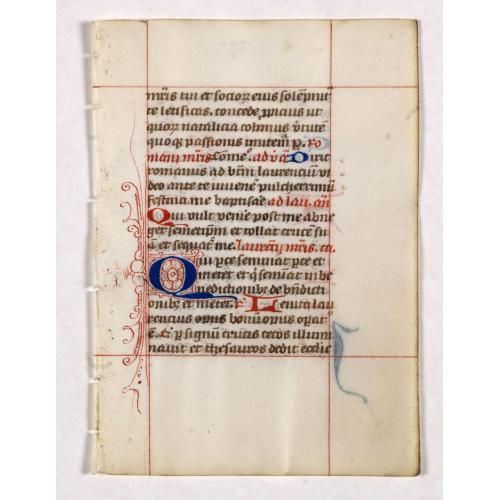 mr̄is tui et socioꝝ eius solēpnit
te letificas. concede ꝓpicius ut
quoꝝ natalicia colimus v̄tute
quoqꝫ passionis imitem̄ ꝑ. ro
mani mr̄is Com̄e. ad vā Dixit
romanus ad bm̄ laurencium vi
deo ante te iuuene pulcherrimū
festina me baptisare ad lau. añ
Qui vult venire post me abne
get semetipm̄ et tollat crucē su
ā et sequat me. laurēcij mr̄is. ca.
Qui ꝑce seminat ꝑce et
metet et q̄ seminat in be
nedictionibꝫ de bn̄dicti
onibꝫ et metet. Leuita lau
rencius opus bonū opat
ē. Qi ꝑ signū crucis cecos illumi
nauit et thesauros dedit ecclie